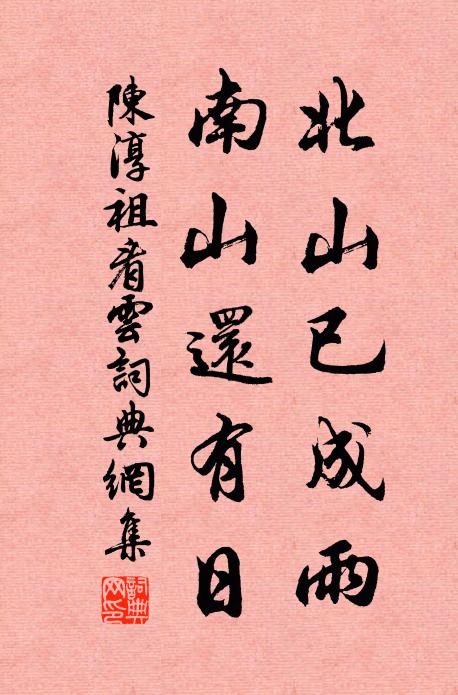 北山已成雨
南山還有日
陳淳祖看雲詞典網集
詞典網印